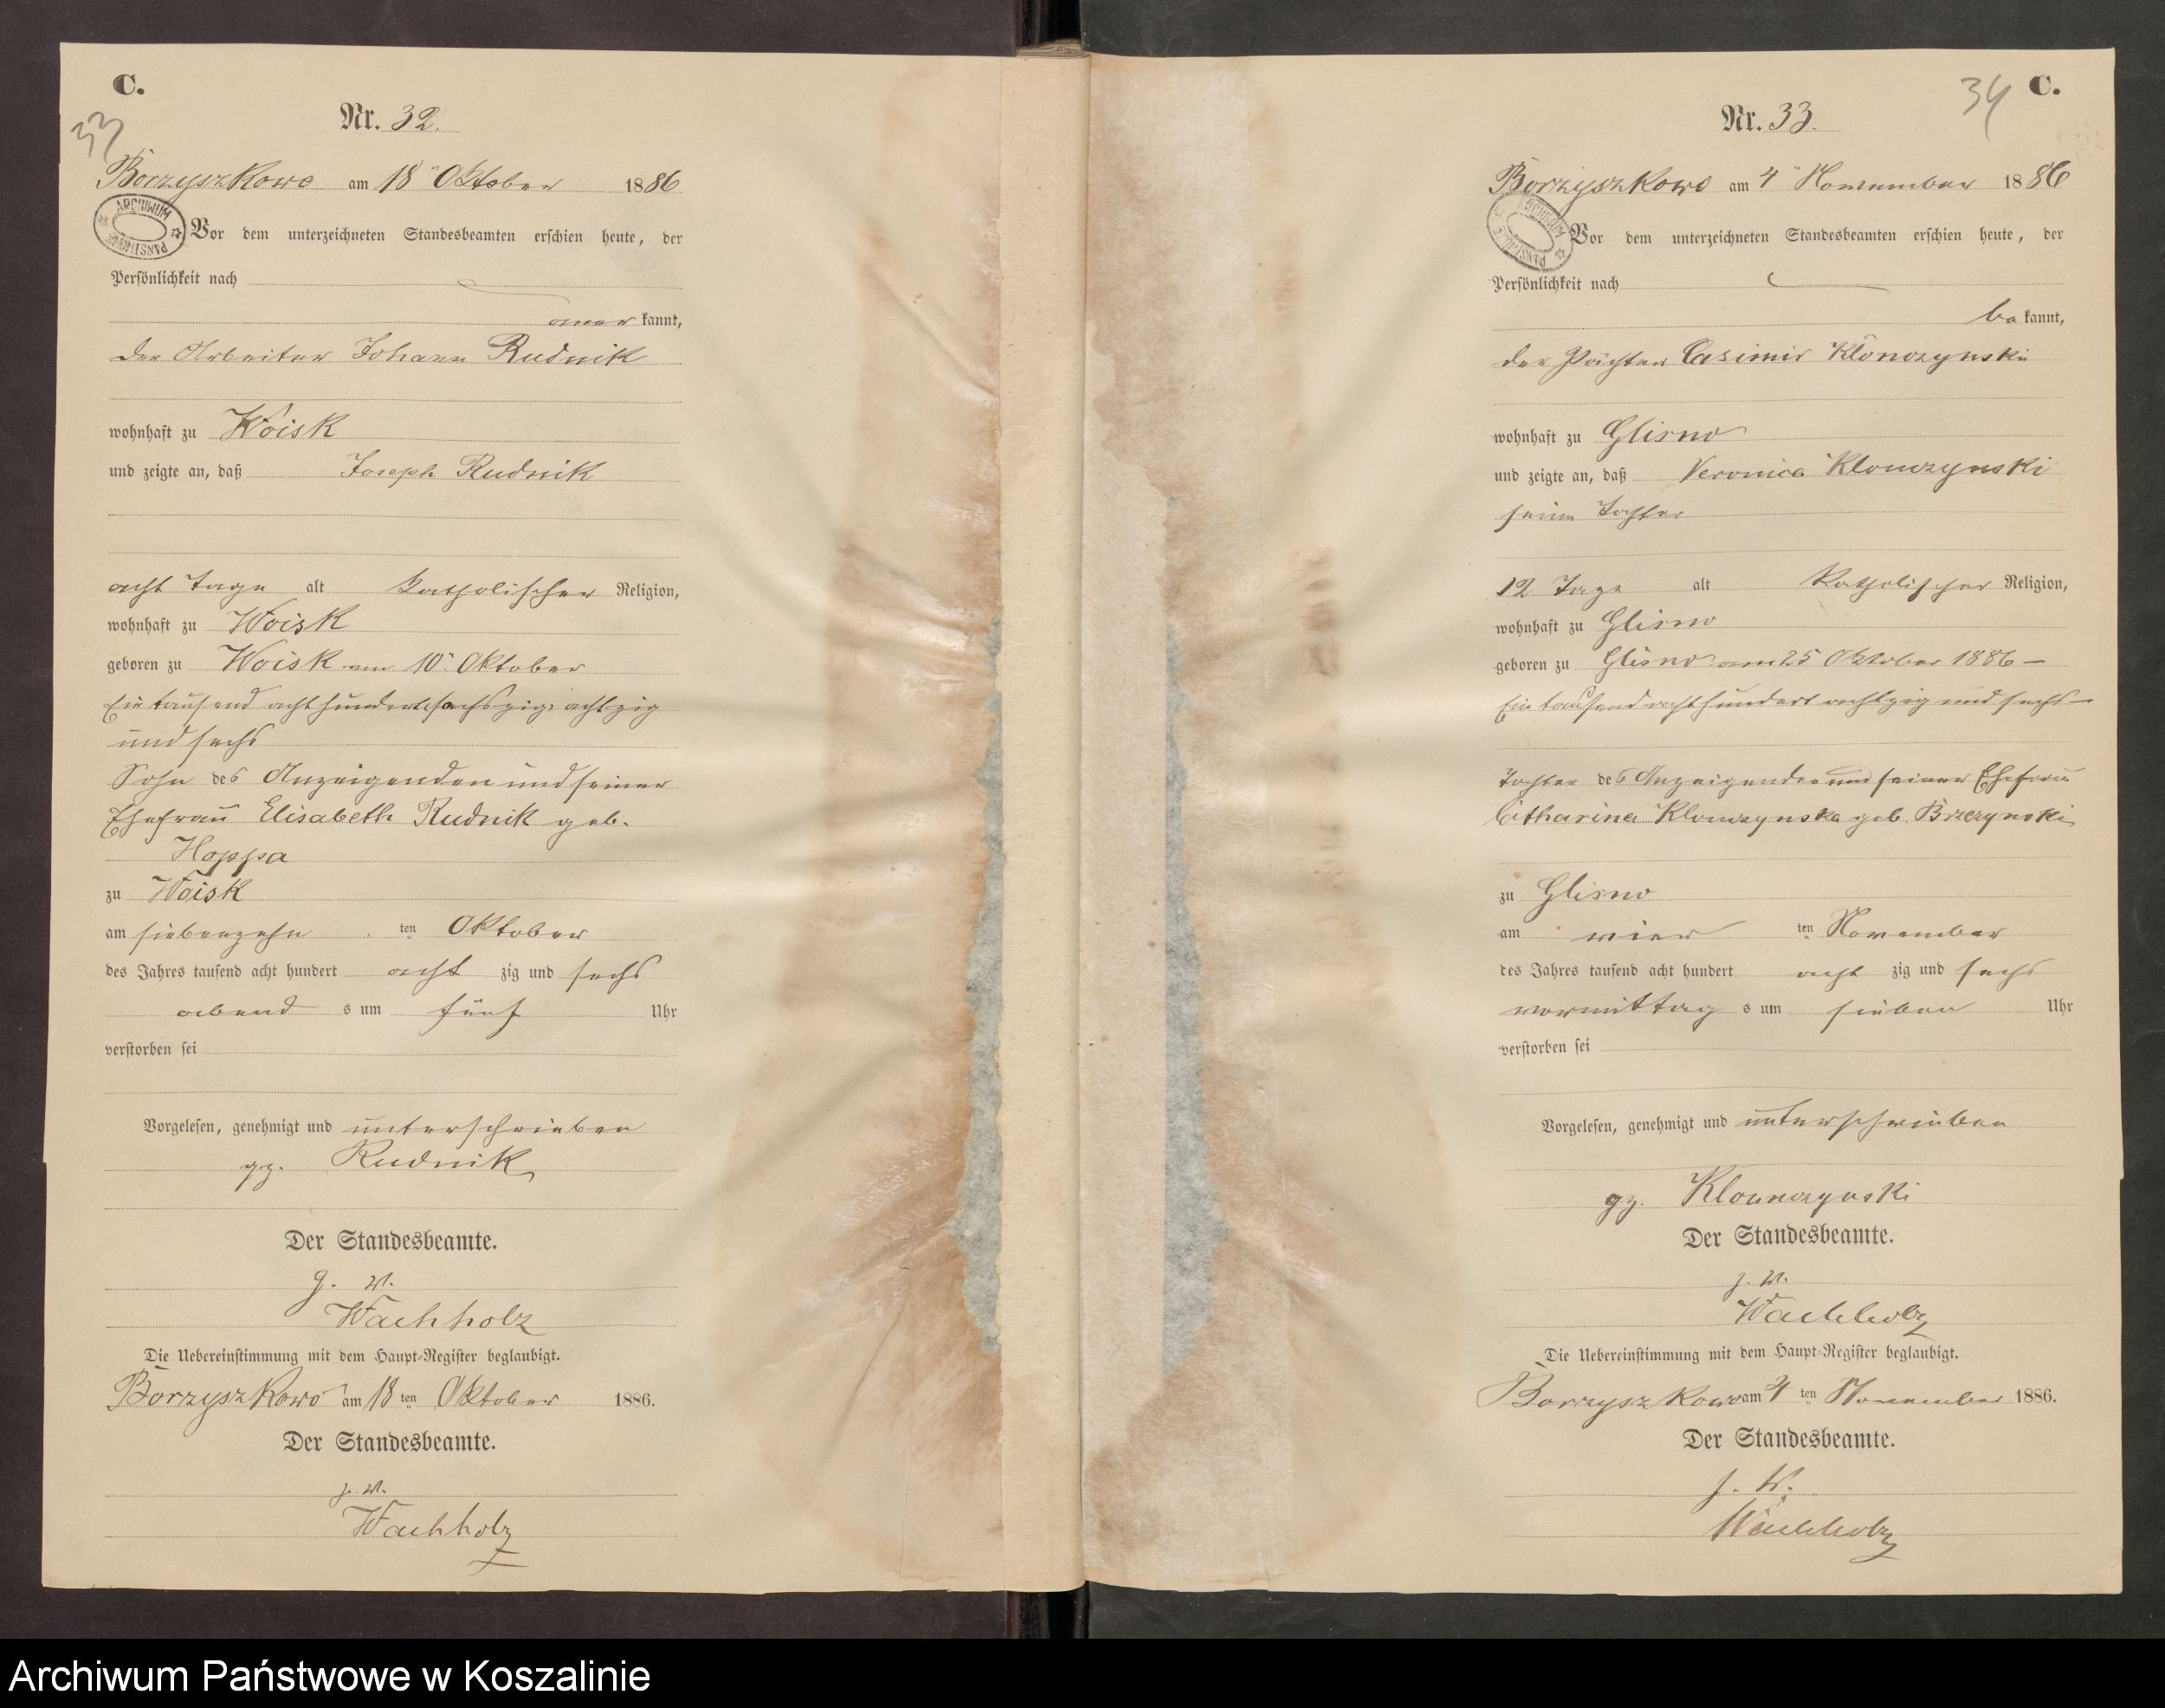 C.
33
Nr. 32.
Borzyszkowo am 18t Oktober 1886
ARCHIWUM PAŃSTWOWE
Vor dem unterzeichneten Standesbeamten erschien heute, der
Persönlichkeit nach
kannt,
der Arbeiter Johann Rudnik
wohnhaft zu Woisk
und zeigte an, daß Joseph Rudnik
acht Tage alt katholischer Religion,
wohnhaft zu Woisk
geboren zu Woisk am 10t Oktober
Ein tausend acht hundert achtzig
und sechs
Sohn des Anzeigenden und seiner
Ehefrau Elisabeth Rudnik geb.
Hoppa
zu Woisk
am siebenzehn ten Oktober
des Jahres tausend acht hundert acht zig und sechs
abend s um fünf Uhr
verstorben sei
Vorgelesen, genehmigt und unterschrieben
gz. Rudnik
Der Standesbeamte.
Wachholz
Die Uebereinstimmung mit dem Haupt-Register beglaubigt.
Borzyszkowo am 18 ten Oktober 1886.
Der Standesbeamte.
Wachholz
34 C.
Nr. 33.
Borzyszkowo am 4t November 1886
ARCHIWUM PAŃSTWOWE
Vor dem unterzeichneten Standesbeamten erschien heute, der
Persönlichkeit nach
be kannt,
der Pächter Casimir Klonczynski
wohnhaft zu Glisno
und zeigte an, daß Veronica Klonczynski
seine Tochter
12 Tage alt Katholischer Religion,
wohnhaft zu Glisno
geboren zu Glisno am 25 Oktober 1886 —
Ein tausend acht hundert achtzig und sechs —
Tochter des Anzeigenden und seiner Ehefrau
Catharina Klonczynska geb. Brzezynski
zu Glisno
am vier ten November
des Jahres tausend acht hundert acht zig und sechs
vormittag s um sieben Uhr
verstorben sei
Vorgelesen, genehmigt und unterschrieben
gz. Klonczynski
Der Standesbeamte.
Wachholz
Die Uebereinstimmung mit dem Haupt-Register beglaubigt.
Borzyszkowo am 4 ten November 1886.
Der Standesbeamte.
Wachholz
Archiwum Państwowe w Koszalinie